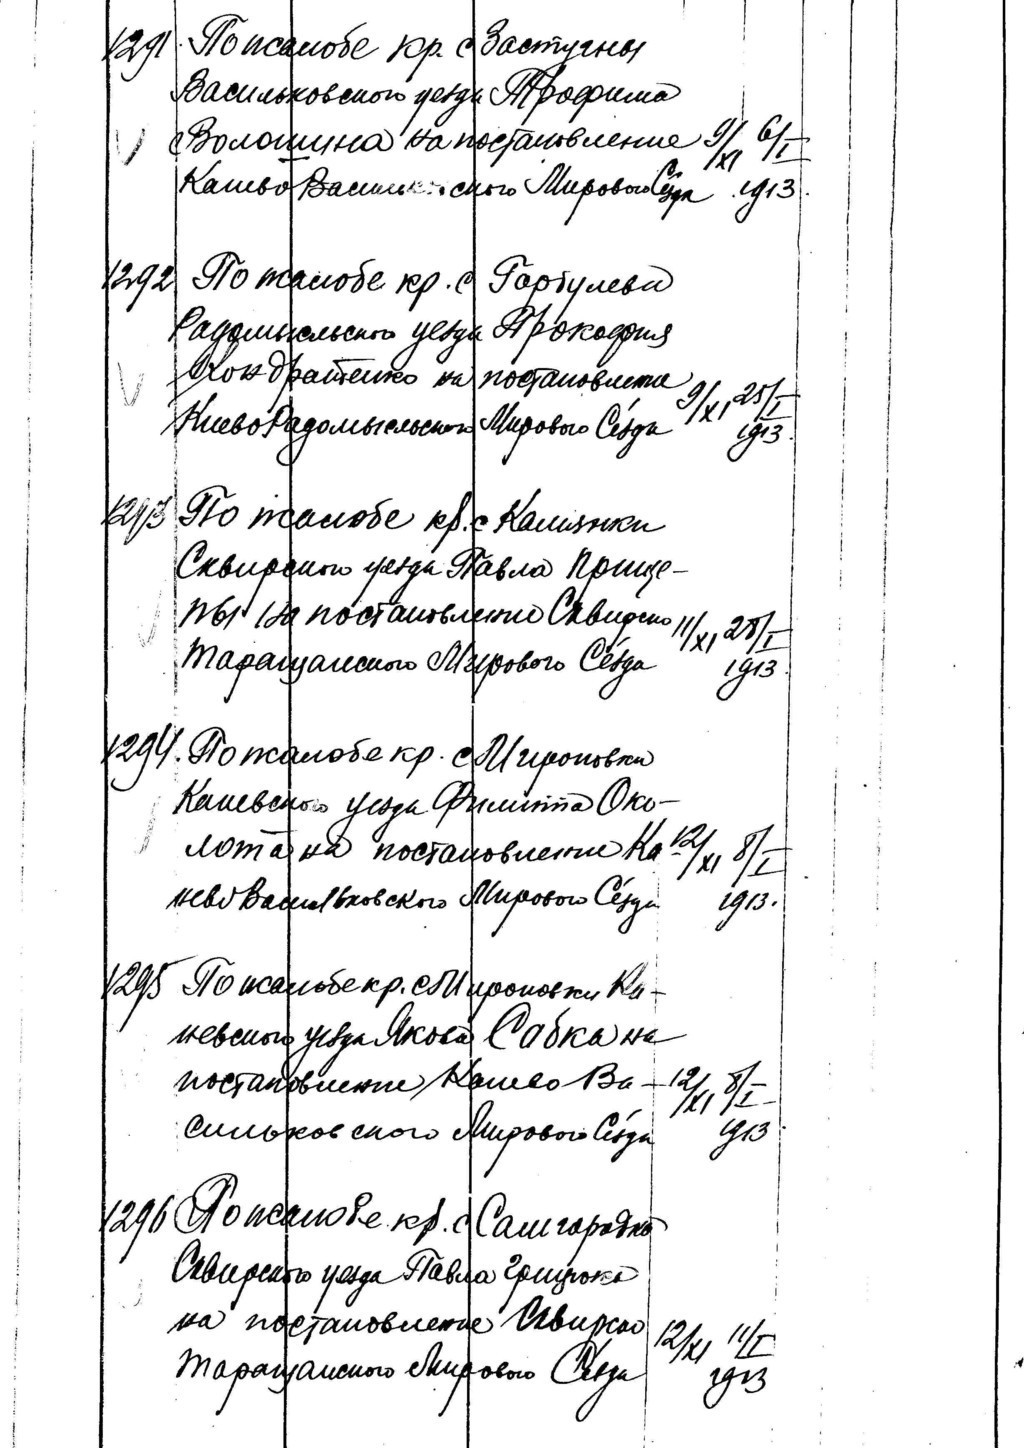 1291. По жалобе кр. с Застугны
Васильковского уезда Трофима
Волошина на постановление 9/XI 6/I
Канево Васильковского Мирового Съезда 1913.
1292 По жалобе кр. с Горбулева
Радомысльского уезда Прокофия
Кондратенко на постановление
Киево Радомысльского Мирового Съезда 9/XI 25/I 1913.
1293 По жалобе кр. с Калиянки
Сквирского уезда Павла Прище-
пы на постановление Сквирско 11/XI 28/I
Таращанского Мирового Съезда 1913.
1294. По жалобе кр. с Мироновки
Каневского уезда Филиппа Око-
лота на постановление Ка- 12/XI 8/I
нево Васильковского Мирового Съезда 1913.
1295 По жалобе кр. с Мироновки Ка-
невского уезда Якова Сабка на
постановление Канево Ва- 12/XI 8/I
сильковского Мирового Съезда 1913
1296 По жалобе кр. с Самгородка
Сквирского уезда Павла
на постановление Сквирско 12/XI 11/I
Таращанского Мирового Съезда 1913